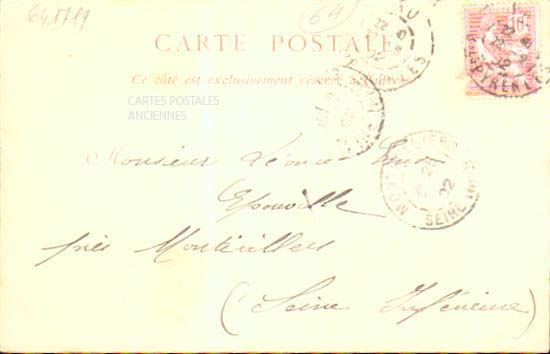 641719
64
CARTE POSTALE
Ce côté est exclusivement réservé à l'adresse
CARTES POSTALES
ANCIENNES
Monsieur Léonce
Epouville
près Montivilliers
(Seine Inférieure)
PYRENEES
SEINE INF